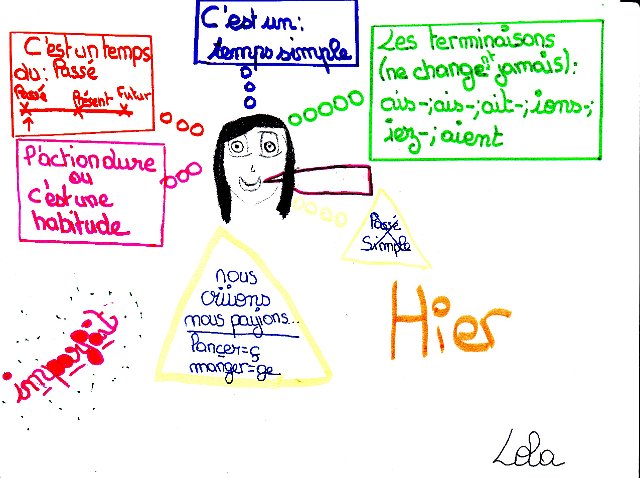 C'est un temps
du : Passé
Passé Présent Futur
C'est un :
temps simple
Les terminaisons
(ne changent jamais) :
ais-; ais-; ait-; ions-;
iez-; aient
l'action dure
ou
c'est une
habitude
Passé
Simple
nous
criions
nous payions...
lançer=ç
manger=ge
Hier
imparfait
Lola